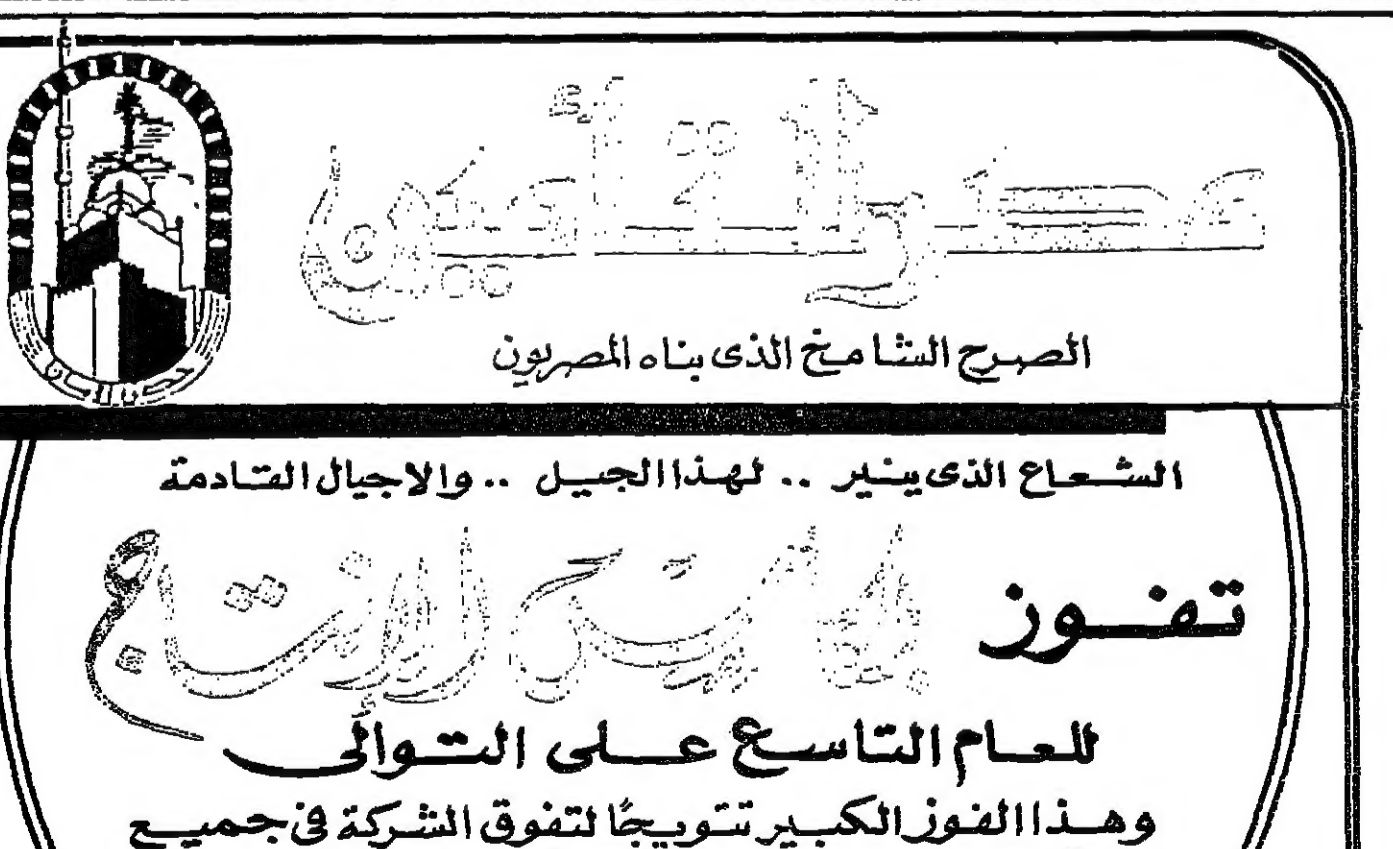 مصر للتأمين
حصن الأمان
الصرح الشامخ الذى بناه المصريون
الشعاع الذى ينير .. لهذا الجيل .. والاجيال القادمة
تفوز الإنتاج
للعام التاسع على التوالى
وهذا الفوز الكبير تتويجًا لتفوق الشركة فى جميع